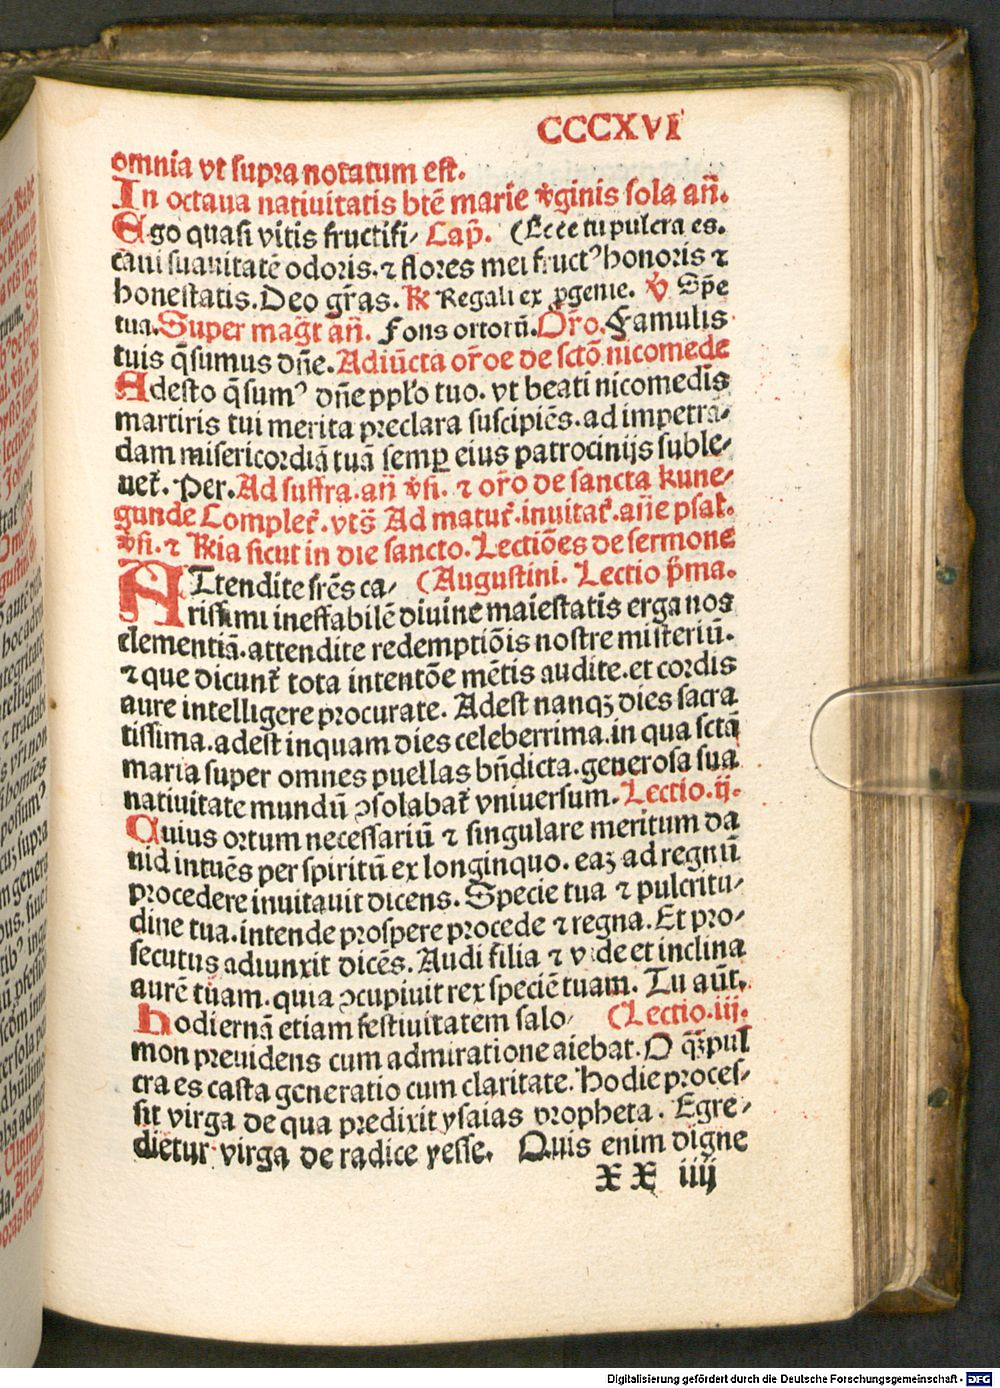 CCCXVI
omnia vt supra notatum est.
In octaua natiuitatis btē marie v̄ginis sola an̄.
Ego quasi vitis fructifi/ Cap̄. (Ecce tu pulcra es.
caui suauitatē odoris.⁊ flores mei fructꝰ honoris ⁊
honestatis. Deo gr̄as. ℟ Regali ex ꝓgenie. ℣ Spē
tua. Super maḡt an̄. Fons ortorū. Or̄o. Famulis
tuis q̄sumus dn̄e. Adiūcta or̄oe de sctō nicomede
Adesto q̄sumꝰ dn̄e pplo tuo. vt beati nicomedis
martiris tui merita preclara suscipiēs. ad impetra/
dam misericordiā tuā semꝑ eius patrocinijs suble/
uet̄. Per. Ad suffra. an̄ v̄si. ⁊ or̄o de sancta kune/
gunde Complet̄. vts̄ Ad matut̄. inuitat̄. an̄e psal̄.
v̄si. ⁊ ℟ia sicut in die sancto. Lectiōes de sermone
ATtendite fr̄es ca/ (Augustini. Lectio p̄ma.
rissimi ineffabilē diuine maiestatis erga nos
clementiā. attendite redemptiōis nostre misteriū.
⁊ que dicunt̄ tota intentōe mētis audite. et cordis
aure intelligere procurate. Adest nanqꝫ dies sacra
tissima. adest inquam dies celeberrima. in qua sctā
maria super omnes puellas bn̄dicta. generosa sua
natiuitate mundū ꝯsolabat̄ vniuersum. Lectio. ij.
Cuius ortum necessariū ⁊ singulare meritum da
uid intuēs per spiritū ex longinquo. eaꝫ ad regnū
procedere inuitauit dicens. Specie tua ⁊ pulcritu/
dine tua. intende prospere procede ⁊ regna. Et pro/
secutus adiunxit dicēs. Audi filia ⁊ vide et inclina
aurē tuam. quia ꝯcupiuit rex speciē tuam. Tu aūt.
Hodiernā etiam festiuitatem salo/ (Lectio. iij.
mon preuidens cum admiratione aiebat. O q̄ꝫ pul
cra es casta generatio cum claritate. Hodie proces/
sit virga de qua predixit ysaias propheta. Egre/
dietur virga de radice yesse. Quis enim digne
XX iiij
Digitalisierung gefördert durch die Deutsche Forschungsgemeinschaft - DFG